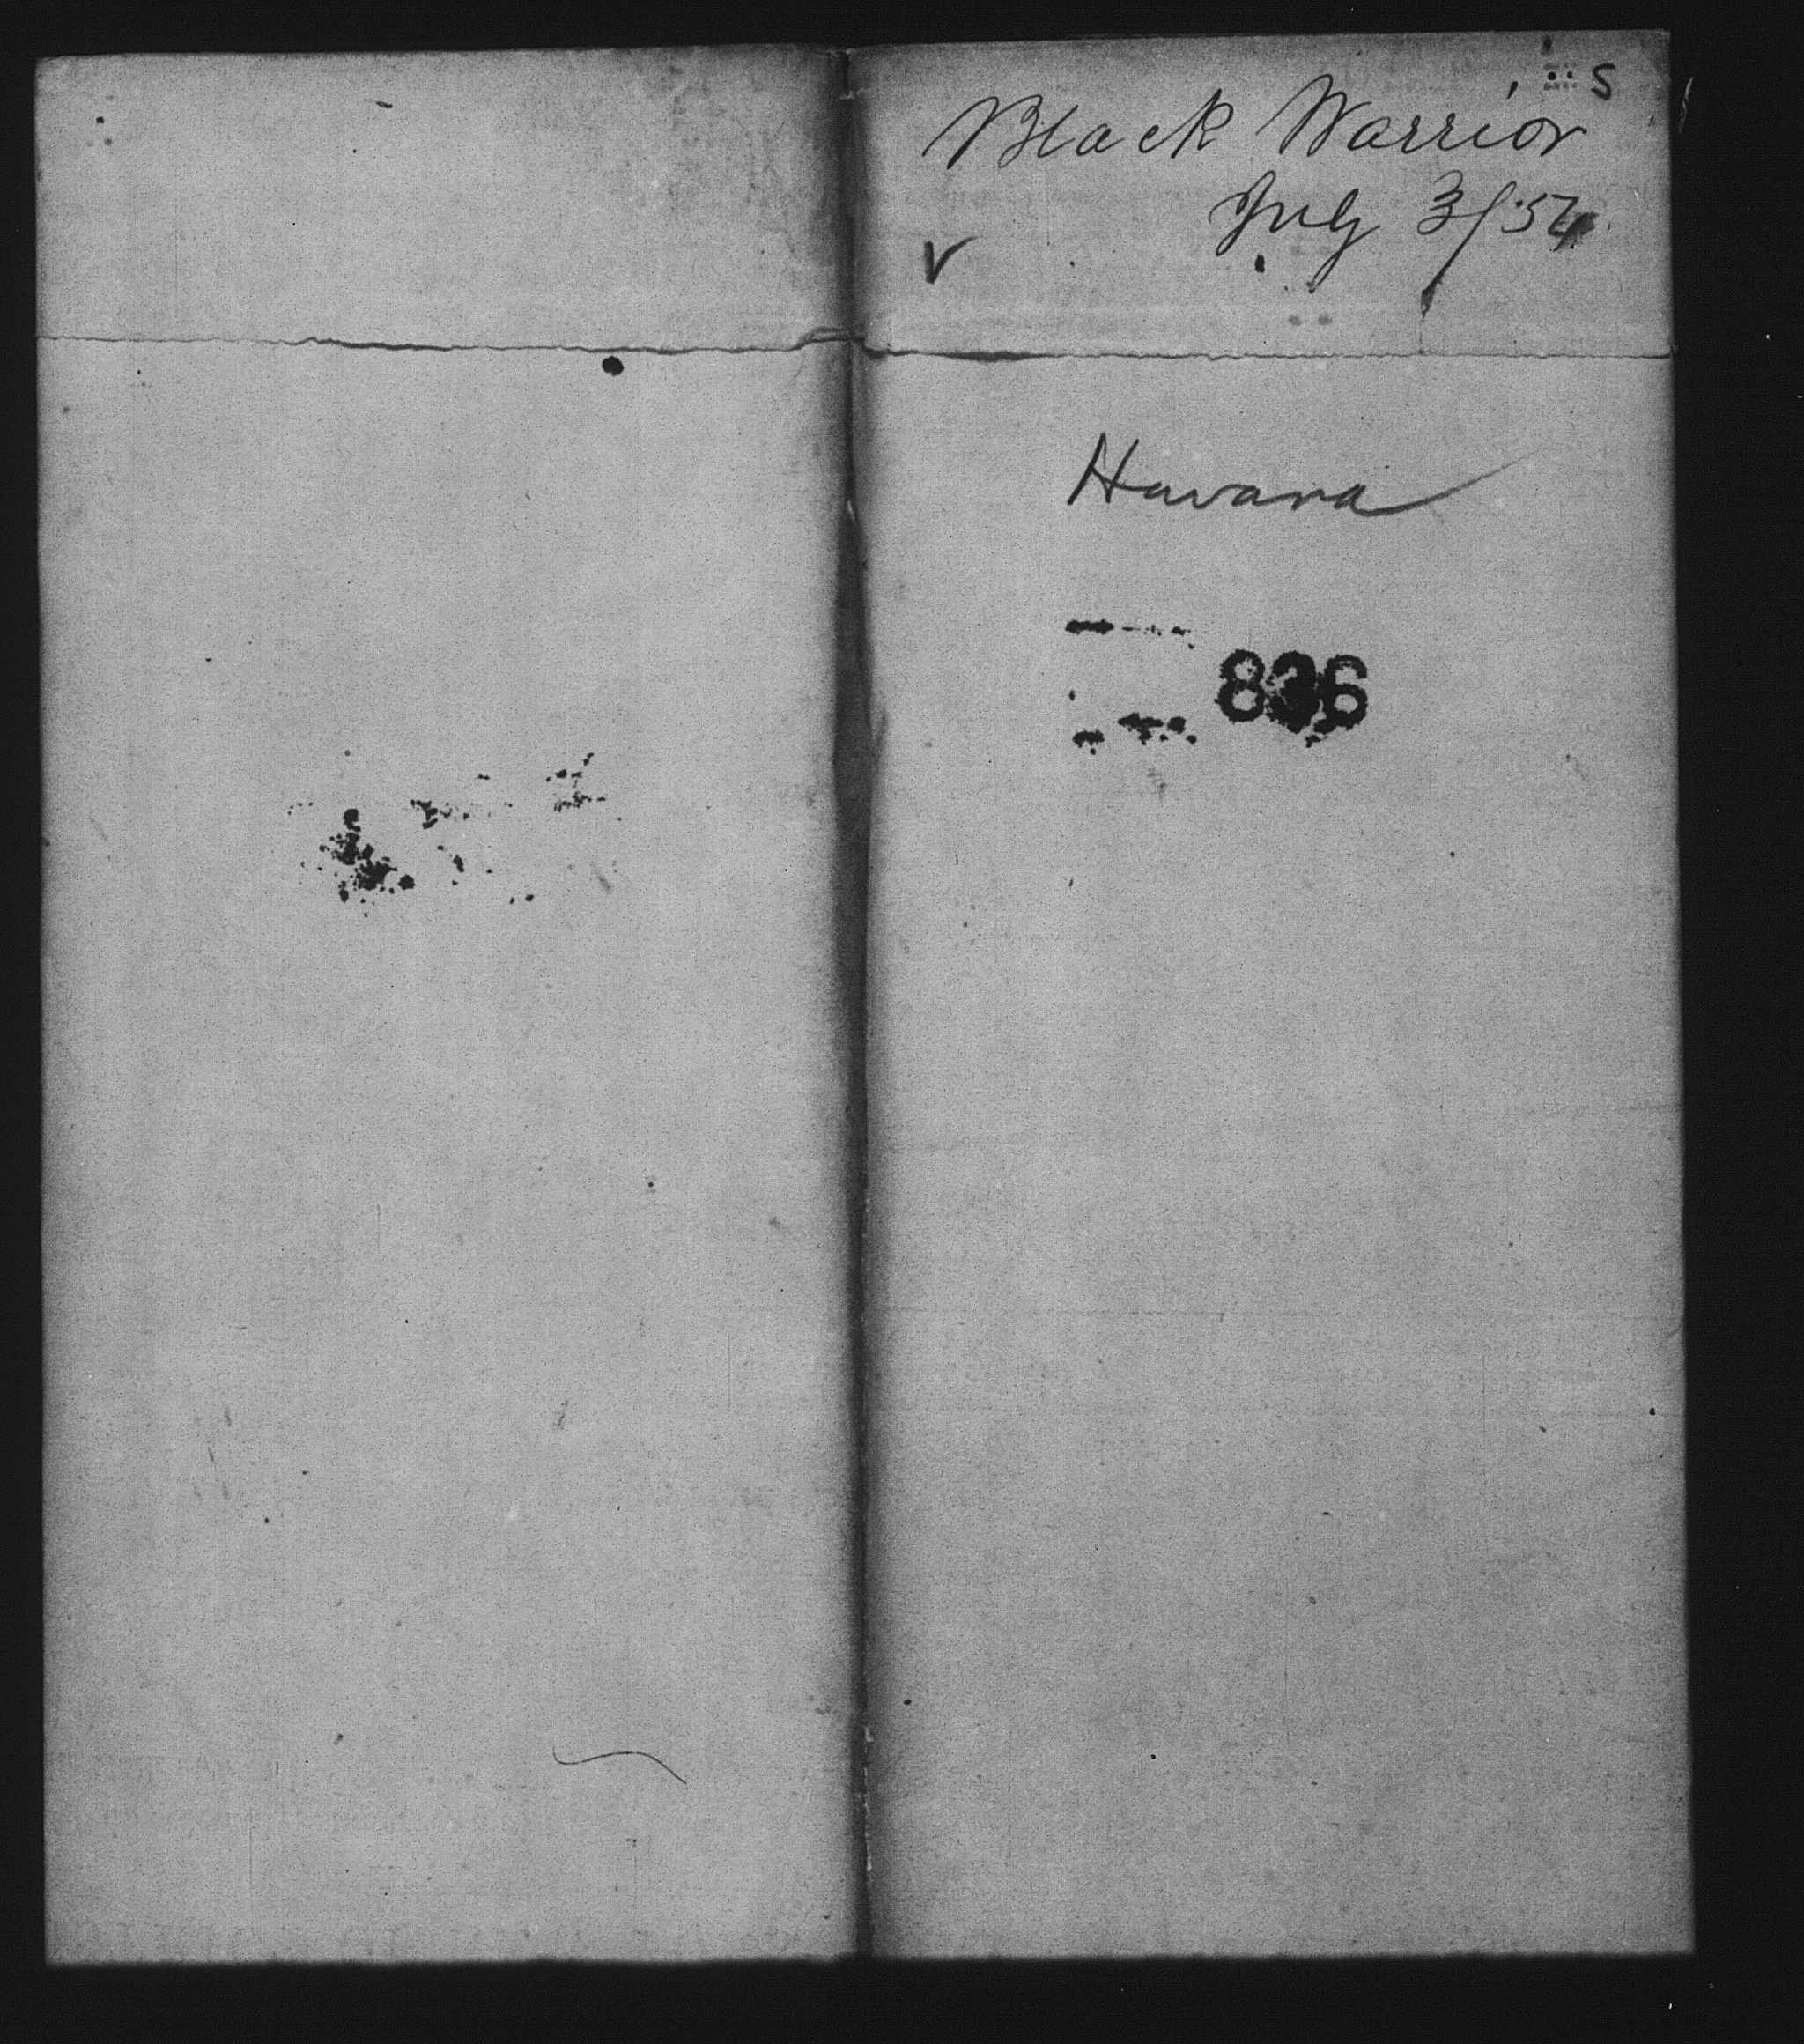 S
Black Warrior
July 3/54
V
Havana
836